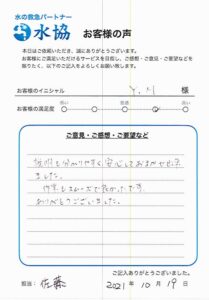 水の救急パートナー
水協 お客様の声
本日はご依頼いただき、誠にありがとうございます。
お客様にご満足いただけるサービスを目指し、ご感想・ご意見・ご要望などを
賜りたく、以下のご記入をよろしくお願い致します。
お客様のイニシャル Y.M 様
お客様の満足度 低い 普通 高い
ご意見・ご感想・ご要望など
説明も分かりやすく安心しておまかせ出来
ました。
作業もスムーズで良かったです。
ありがとうございました。
ご記入ありがとうございました。
担当: 佐藤 2021年10月19日